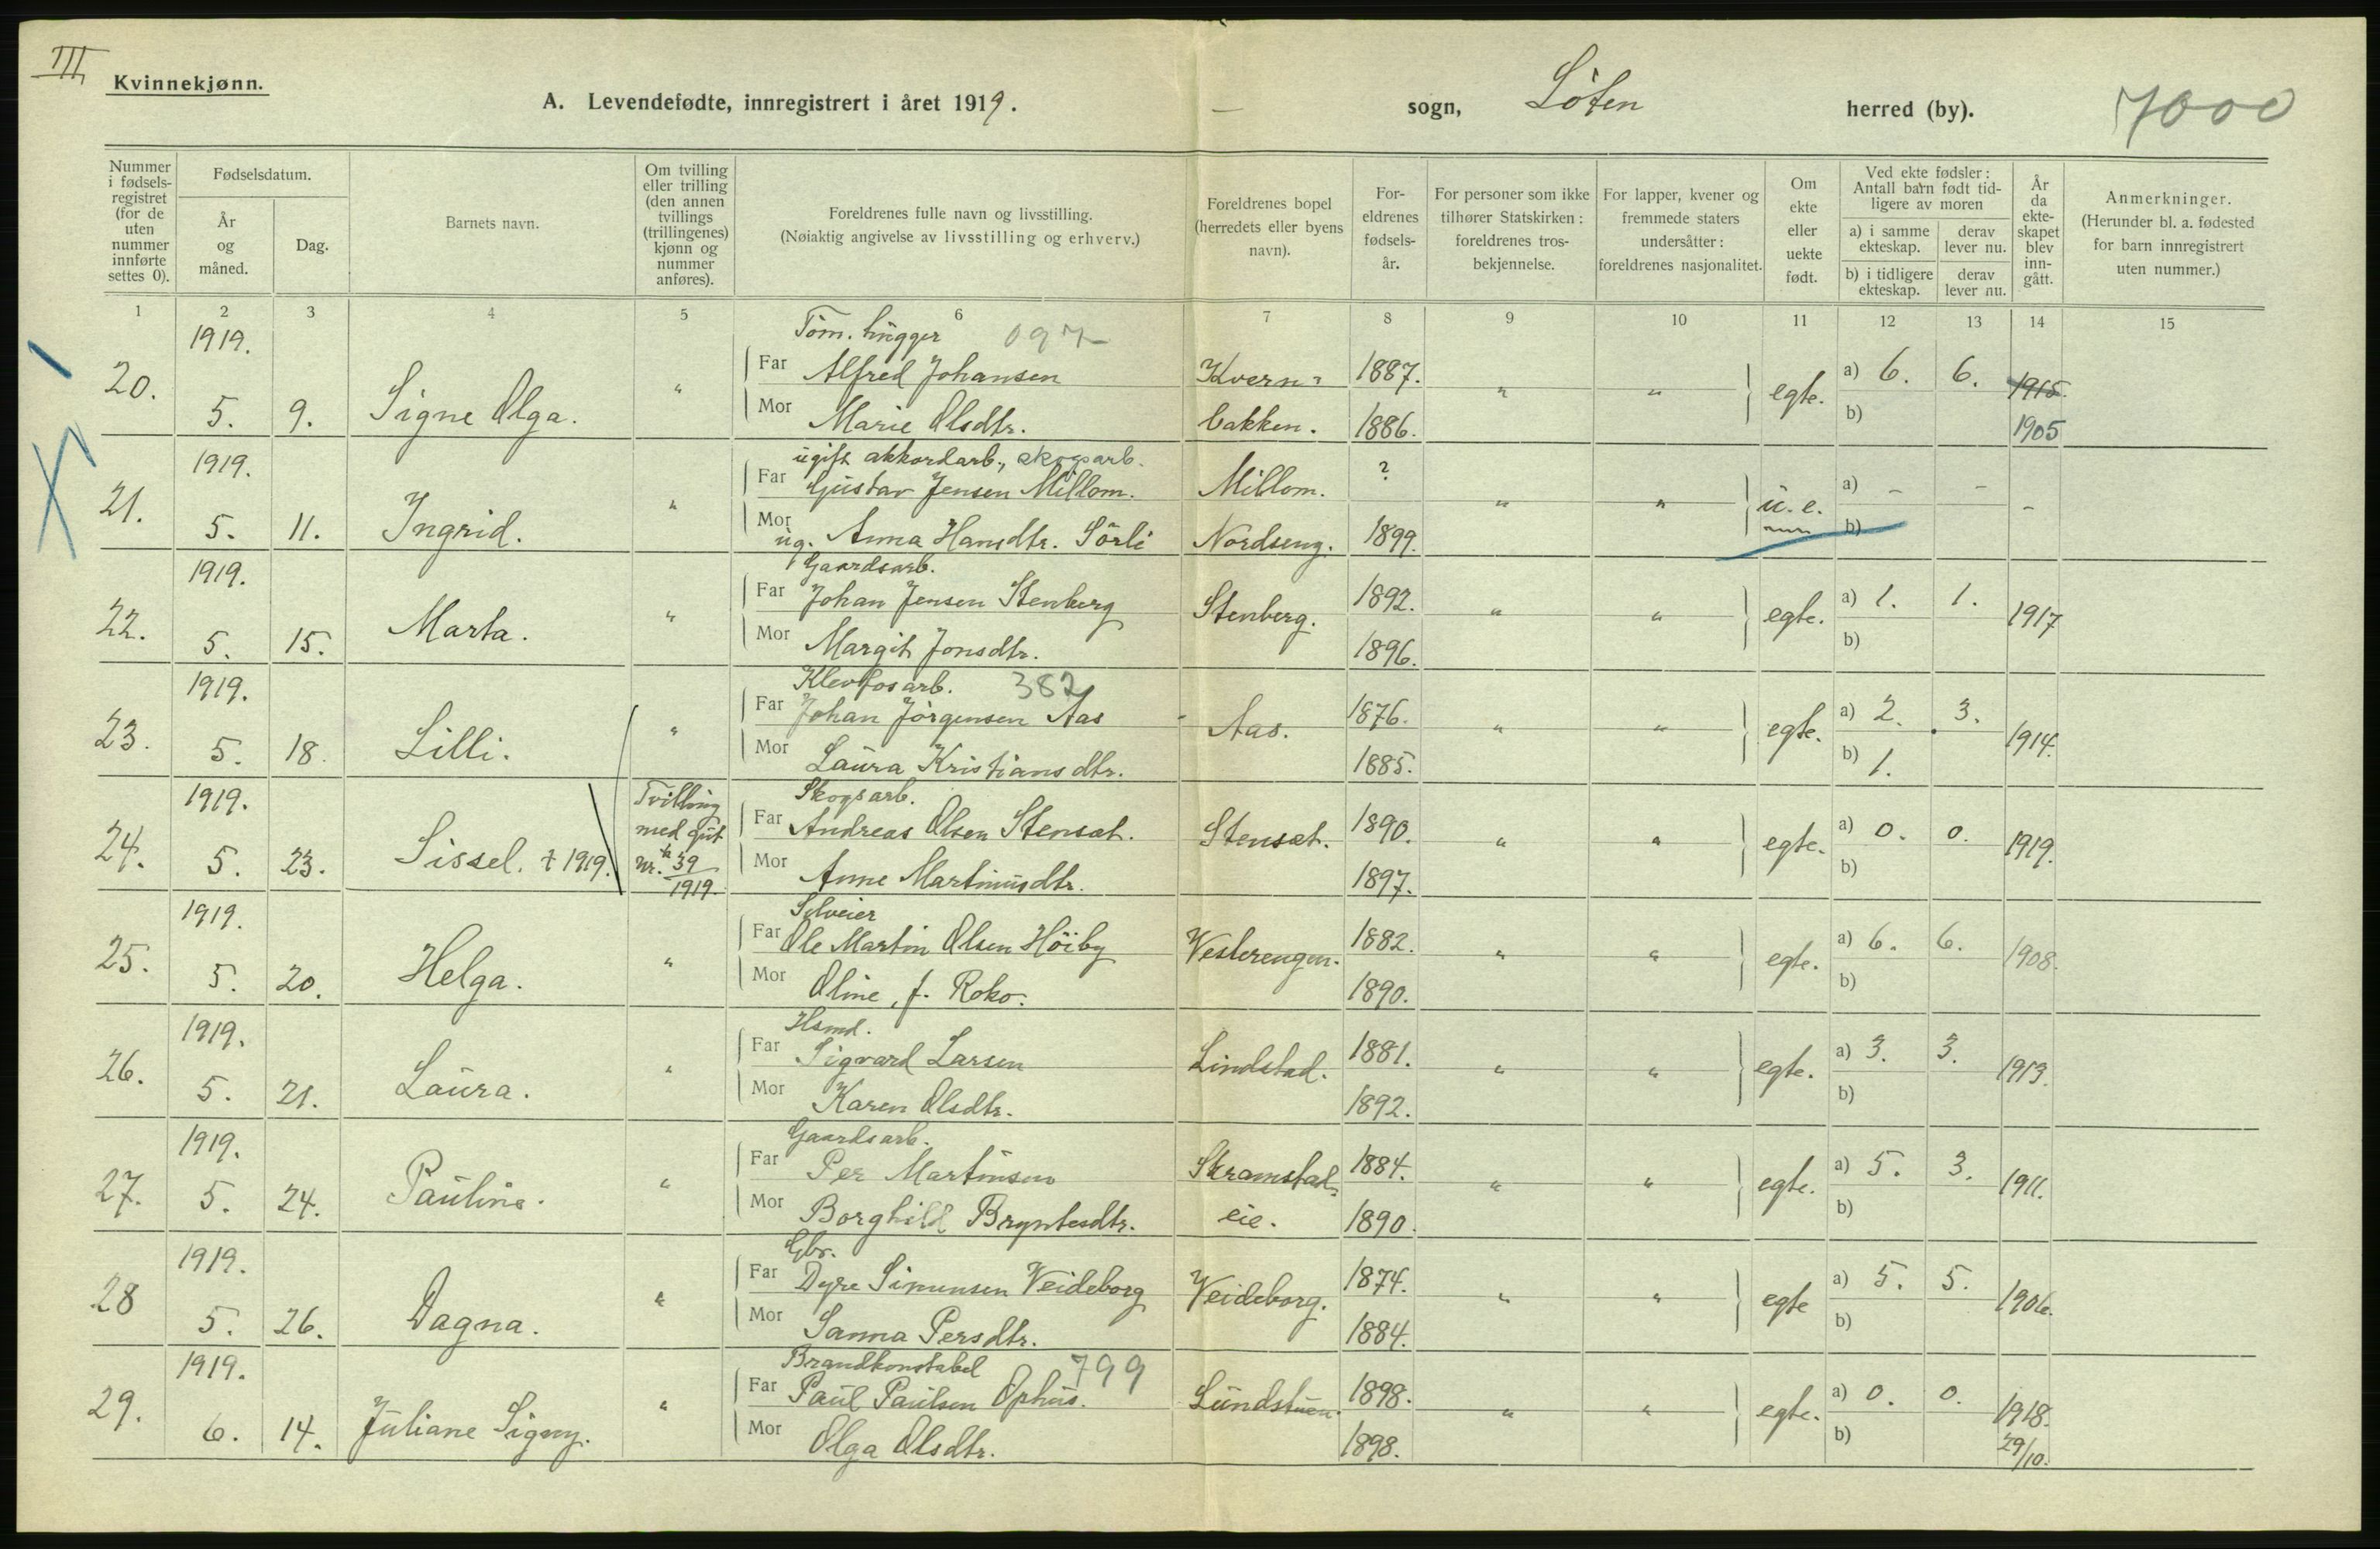 III
Kvinnekjønn.
A. Levendefødte, innregistrert i året 1919.
— sogn, Löten herred (by). 7000
Nummer i fødsels-registret (for de uten nummer innførte settes 0).
Fødselsdatum.
År og måned.
Dag.
Barnets navn.
Om tvilling eller trilling (den annen tvillings (trillingenes) kjønn og nummer anføres).
Foreldrenes fulle navn og livsstilling. (Nøiaktig angivelse av livsstilling og erhverv.)
Foreldrenes bopel (herredets eller byens navn).
For-eldrenes fødsels-år.
For personer som ikke tilhører Statskirken: foreldrenes tros-bekjennelse.
For lapper, kvener og fremmede staters undersåtter: foreldrenes nasjonalitet.
Om ekte eller uekte født.
Ved ekte fødsler: Antall barn født tid-ligere av moren
a) i samme ekteskap. derav lever nu.
b) i tidligere ekteskap. derav lever nu.
År da ekte-skapet blev inn-gått.
Anmerkninger. (Herunder bl. a. fødested for barn innregistrert uten nummer.)
1 2 3 4 5 6 7 8 9 10 11 12 13 14 15
1919. Töm. hugger 097
20. 5. 9. Signe Olga. " Far Alfred Johansen Kvern- 1887. " " egte. a) 6. 6. 1915.
Mor Marie Olsdtr. bakken. 1886. b) 1905
1919. ugift akkordarb., skogsarb.
21. 5. 11. Ingrid. " Far Gustav Jensen Millom. Millom. ? " " u. e. a) - - -
Mor ug. Anna Hansdtr. Sörli Nordseng. 1899. b)
1919. Gaardsarb.
22. 5. 15. Marta. " Far Johan Jensen Stenberg Stenberg. 1892. " " egte. a) 1. 1. 1917
Mor Margit Jonsdtr. 1896. b)
1919. Klevfosarb. 382
23. 5. 18. Lilli. " Far Johan Jörgensen Aas Aas. 1876. " " egte. a) 2. 3. 1914.
Mor Laura Kristiansdtr. 1885. b) 1.
1919. Tvilling med gut Nr. 39 1919. Skogsarb.
24. 5. 23. Sissel. † 1919. Far Andreas Olsen Stensæt. Stensæt. 1890. " " egte. a) 0. 0. 1919.
Mor Anne Martinusdtr. 1897. b)
1919. Selveier
25. 5. 20. Helga. " Far Ole Martin Olsen Höiby Vesterengen. 1882. " " egte. a) 6. 6. 1908.
Mor Oline, f. Roko. 1890. b)
1919. Hsmd.
26. 5. 21. Laura. " Far Sigvard Larsen Lindstad. 1881. " " egte. a) 3. 3. 1913.
Mor Karen Olsdtr. 1892. b)
1919. Gaardsarb.
27. 5. 24. Pauline. " Far Per Martinsen Skramstad- 1884. " " egte. a) 5. 3. 1911.
Mor Borghild Bryntesdtr. eie. 1890. b)
1919. Gbr.
28 5. 26. Dagna. " Far Dyre Simensen Veideborg Veideborg. 1874. " " egte a) 5. 5. 1906.
Mor Sanna Persdtr. 1884. b)
1919. Brandkonstabel 799
29. 6. 14. Juliane Signy. " Far Paul Paulsen Ophus. Lundstuen. 1898. " " egte. a) 0. 0. 1918.
Mor Olga Olsdtr. 1898. b) 29/10.